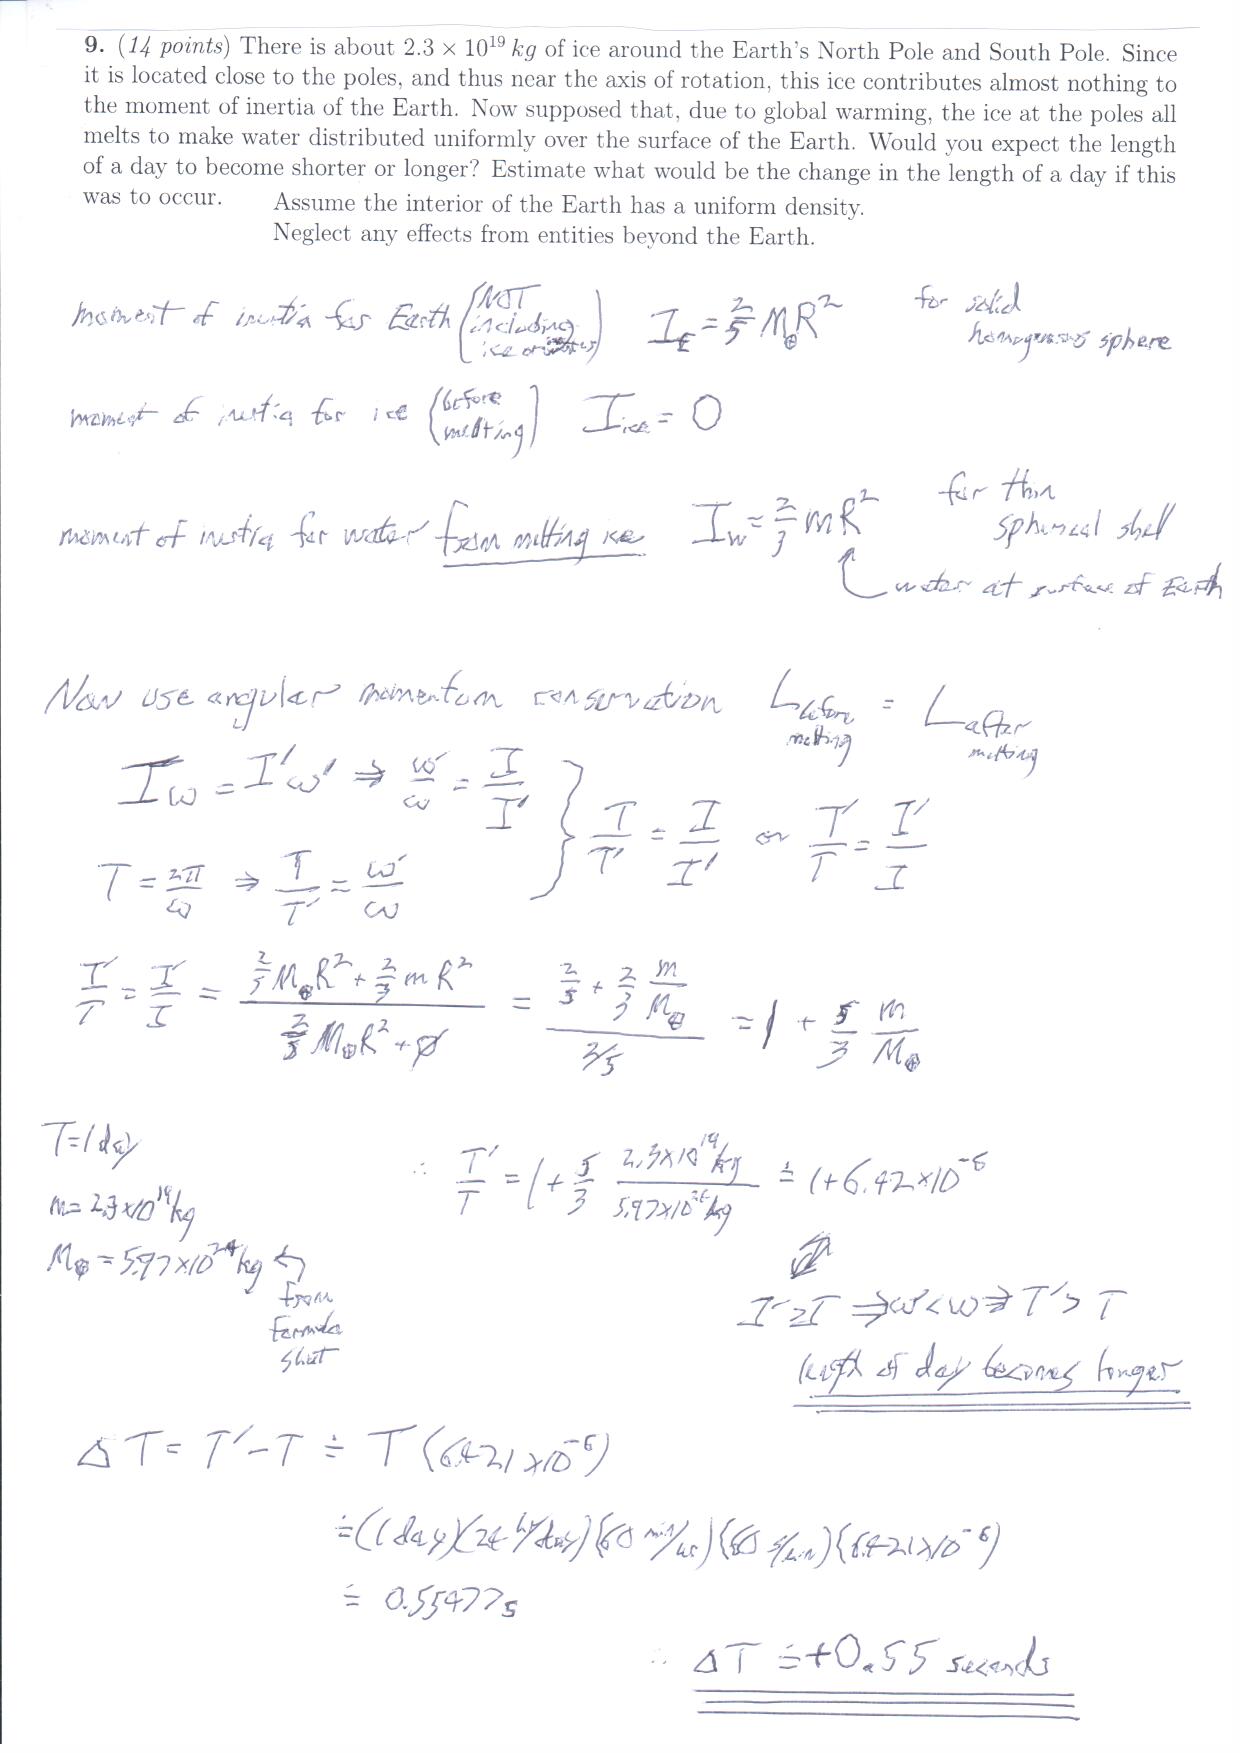 9. (14 points) There is about 2.3 × 10¹⁹ kg of ice around the Earth's North Pole and South Pole. Since
it is located close to the poles, and thus near the axis of rotation, this ice contributes almost nothing to
the moment of inertia of the Earth. Now supposed that, due to global warming, the ice at the poles all
melts to make water distributed uniformly over the surface of the Earth. Would you expect the length
of a day to become shorter or longer? Estimate what would be the change in the length of a day if this
was to occur. Assume the interior of the Earth has a uniform density.
Neglect any effects from entities beyond the Earth.
moment of inertia for Earth (NOT including ice or) I_E = 2/5 M⊕R² for solid homogeneous sphere
moment of inertia for ice (before melting) I_ice = 0
moment of inertia for water from melting ice I_w = 2/3 mR² for thin spherical shell
water at surface of Earth
Now use angular momentum conservation L before melting = L after melting
Iω = I'ω' ⇒ ω'/ω = I/I' } T/T' = I/I' or T'/T = I'/I
T = 2π/ω ⇒ T/T' = ω'/ω
T'/T = I'/I = (2/5 M⊕R² + 2/3 mR²)/(2/5 M⊕R² + 0) = (2/5 + 2/3 m/M⊕)/(2/5) = 1 + 5/3 m/M⊕
T = 1 day
m = 2.3×10¹⁹ kg
M⊕ = 5.97×10²⁴ kg ← from formula sheet
∴ T'/T = 1 + 5/3 2.3×10¹⁹ kg/5.97×10²⁴ kg ≐ 1 + 6.42×10⁻⁶
I' > I ⇒ ω' < ω ⇒ T' > T
length of day becomes longer
ΔT = T' − T ≐ T(6.421×10⁻⁶)
≐ (1 day)(24 hr/day)(60 min/hr)(60 s/min)(6.421×10⁻⁶)
≐ 0.55477s
∴ ΔT ≐ +0.55 seconds